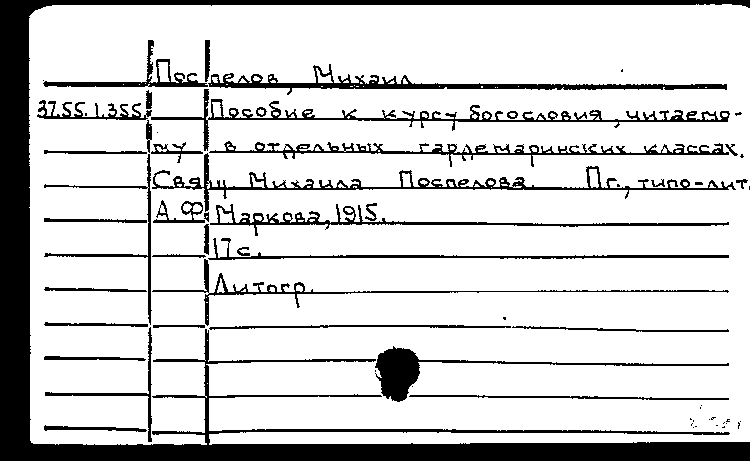 Поспелов, Михаил
37.55.1.355. Пособие к курсу богословия, читаемо-
му в отдельных гардемаринских классах.
Свящ Михаила Поспелова. Пг., типо-лит.
А.Ф. Маркова, 1915.
17 с.
Литогр.